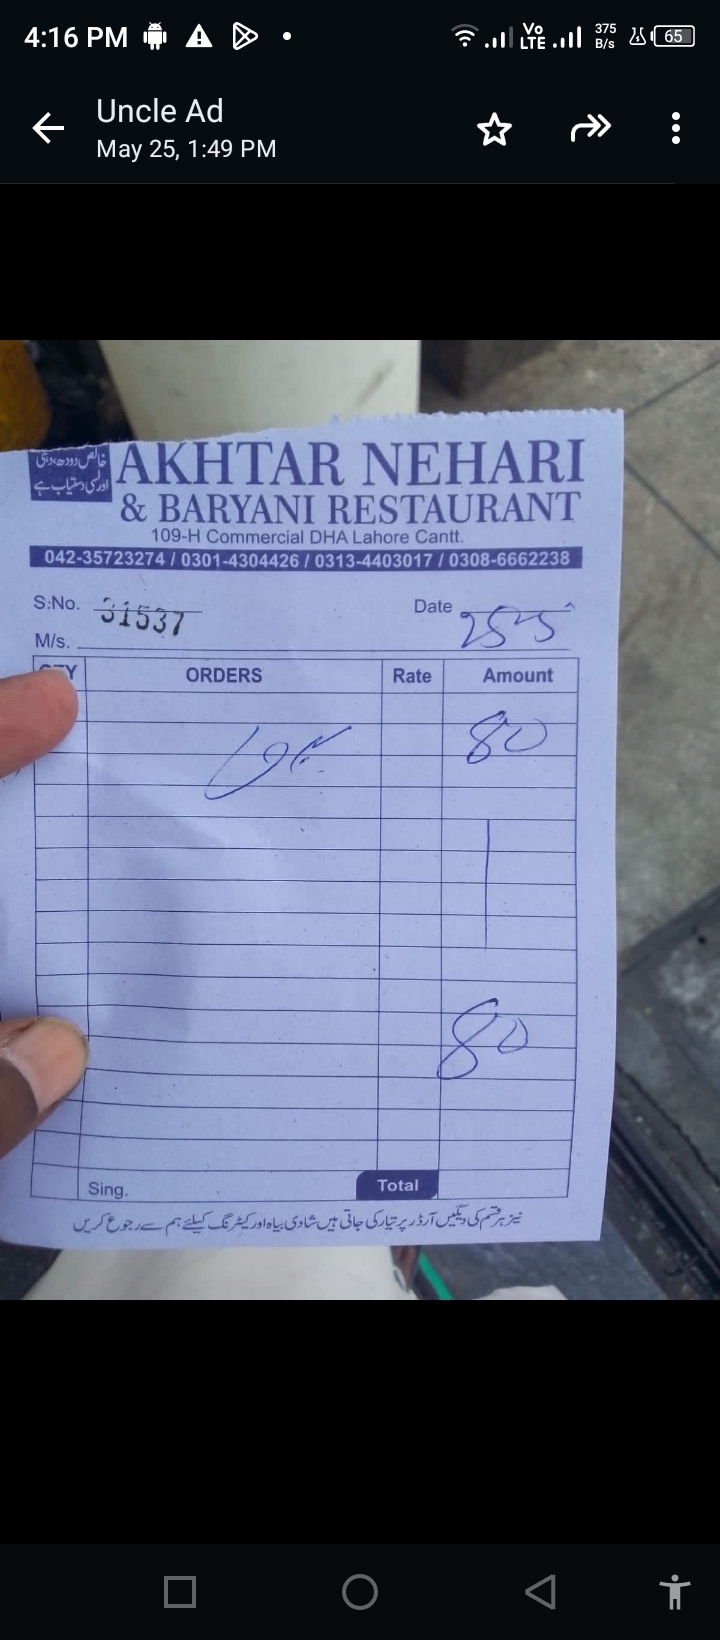 4:16 PM
Vo LTE 375 B/s 65
Uncle Ad
May 25, 1:49 PM
خالص دودھ، دہی
اور کسی دستیاب ہے
AKHTAR NEHARI
& BARYANI RESTAURANT
109-H Commercial DHA Lahore Cantt.
042-35723274 / 0301-4304426 / 0313-4403017 / 0308-6662238
S:No. 31537 Date 25-5
M/s.
QTY ORDERS Rate Amount
80
80
Sing. Total
نیز ہر قسم کی دیگیں آرڈر پر تیار کی جاتی ہیں شادی بیاہ اور کیٹرنگ کیلئے ہم سے رجوع کریں